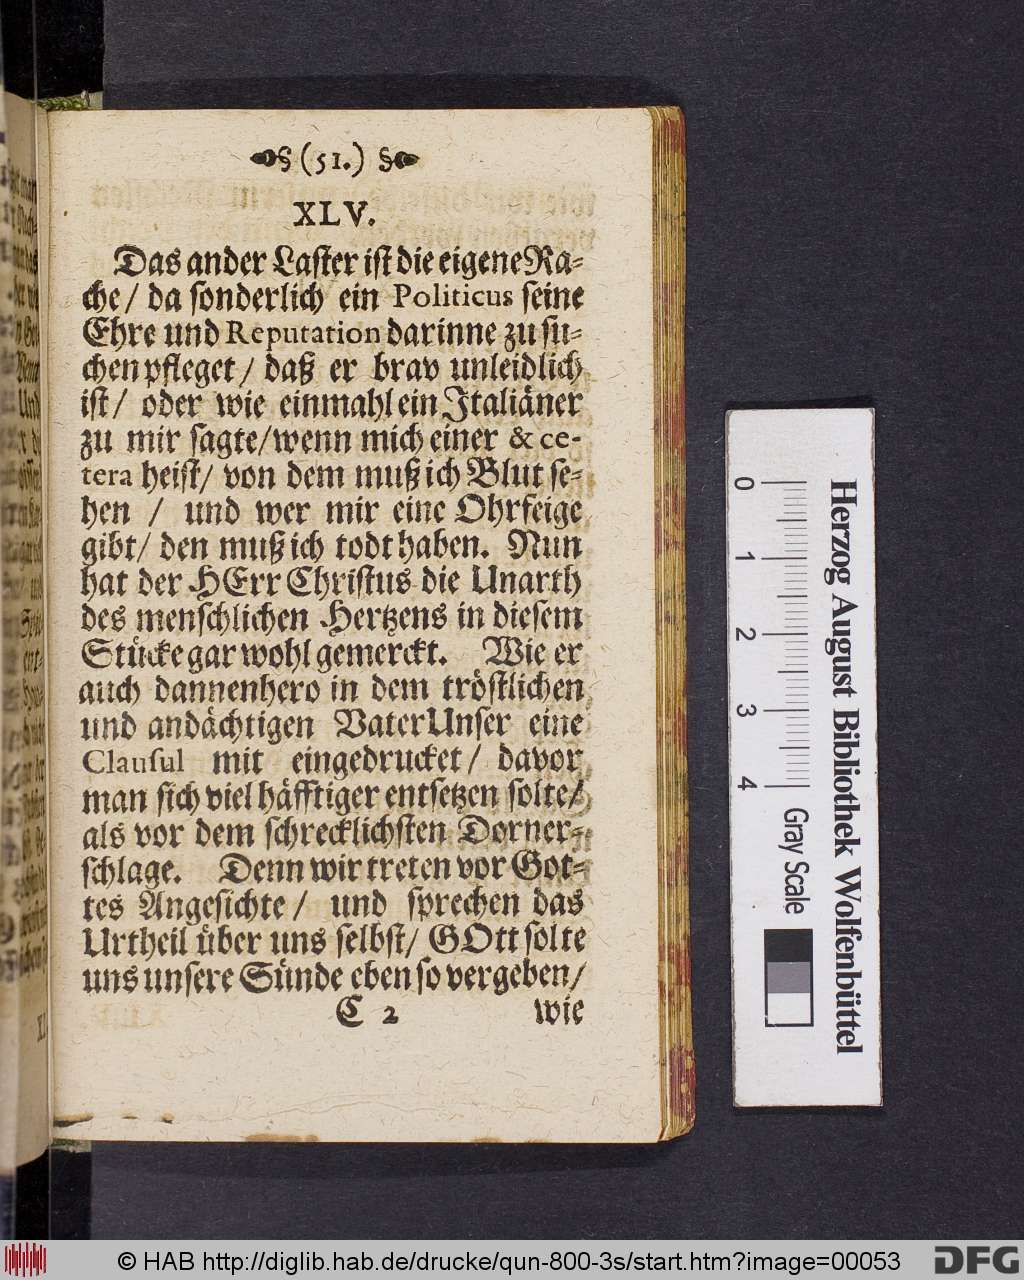 § (51.) §
XLV.
Das ander Laſter iſt die eigene Ra-
che/ da ſonderlich ein Politicus ſeine
Ehre und Reputation darinne zu ſu-
chen pfleget/ daß er brav unleidlich
iſt/ oder wie einmahl ein Italiäner
zu mir ſagte/ wenn mich einer & ce-
tera heiſt/ von dem muß ich Blut ſe-
hen / und wer mir eine Ohrfeige
gibt/ den muß ich todt haben. Nun
hat der HErr Chriſtus die Unarth
des menſchlichen Hertzens in dieſem
Stücke gar wohl gemerckt. Wie er
auch dannenhero in dem tröſtlichen
und andächtigen Vater Unſer eine
Clauſul mit eingedrucket/ davor
man ſich viel häfftiger entſetzen ſolte/
als vor dem ſchrecklichſten Dorner-
ſchlage. Denn wir treten vor Got-
tes Angeſichte/ und ſprechen das
Urtheil über uns ſelbſt/ GOtt ſolte
uns unſere Sünde eben ſo vergeben/
C 2 wie
Herzog August Bibliothek Wolfenbüttel
0 1 2 3 4
Gray Scale
© HAB http://diglib.hab.de/drucke/qun-800-3s/start.htm?image=00053
DFG